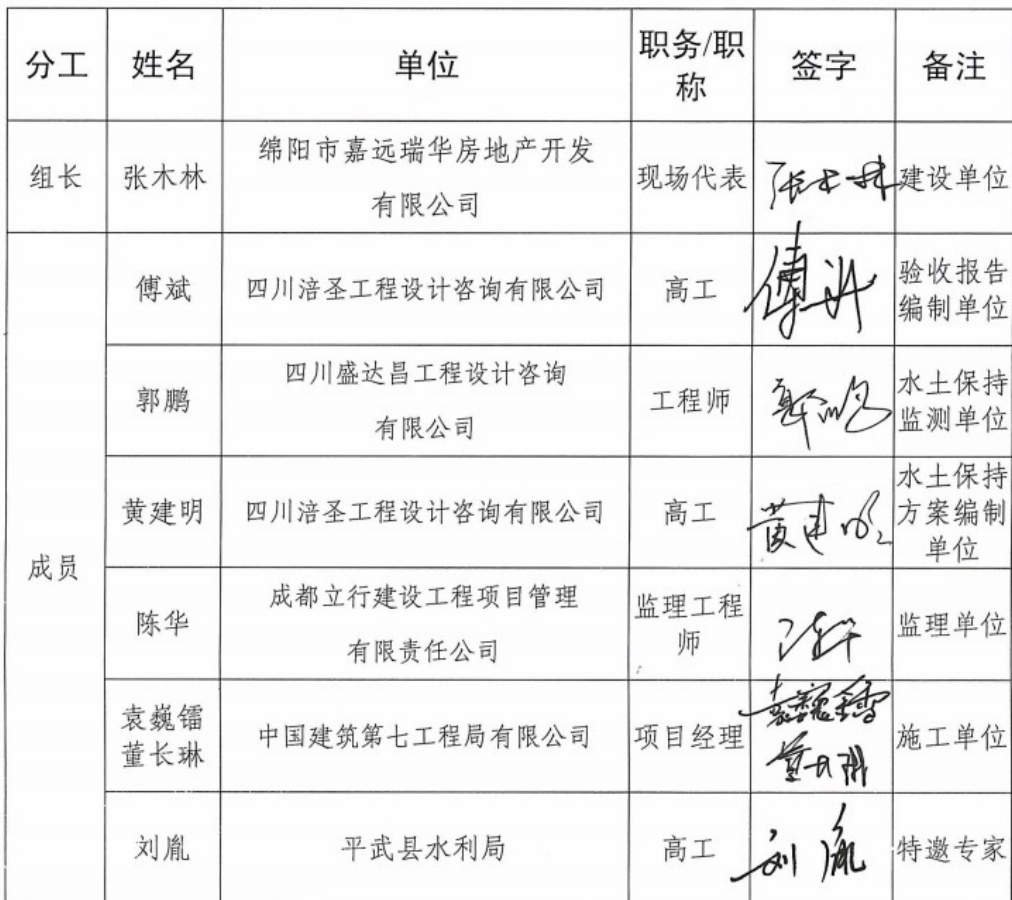 分工 姓名 单位 职务/职称 签字 备注
组长 张木林 绵阳市嘉远瑞华房地产开发有限公司 现场代表 张木林 建设单位
成员 傅斌 四川涪圣工程设计咨询有限公司 高工 傅斌 验收报告编制单位
郭鹏 四川盛达昌工程设计咨询有限公司 工程师 郭鹏 水土保持监测单位
黄建明 四川涪圣工程设计咨询有限公司 高工 黄建明 水土保持方案编制单位
陈华 成都立行建设工程项目管理有限责任公司 监理工程师 陈华 监理单位
袁巍镭 董长琳 中国建筑第七工程局有限公司 项目经理 袁巍镭 董长琳 施工单位
刘胤 平武县水利局 高工 刘胤 特邀专家